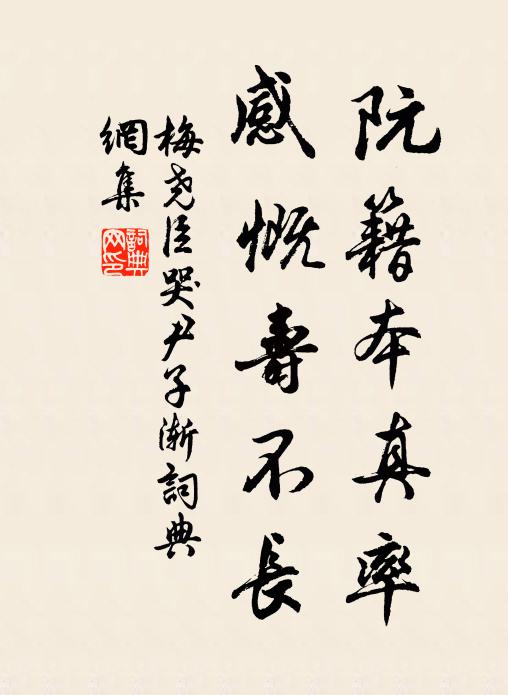 阮籍本真率
感慨壽不長
梅尧臣哭尹子渐詞典
網集
詞典
网印